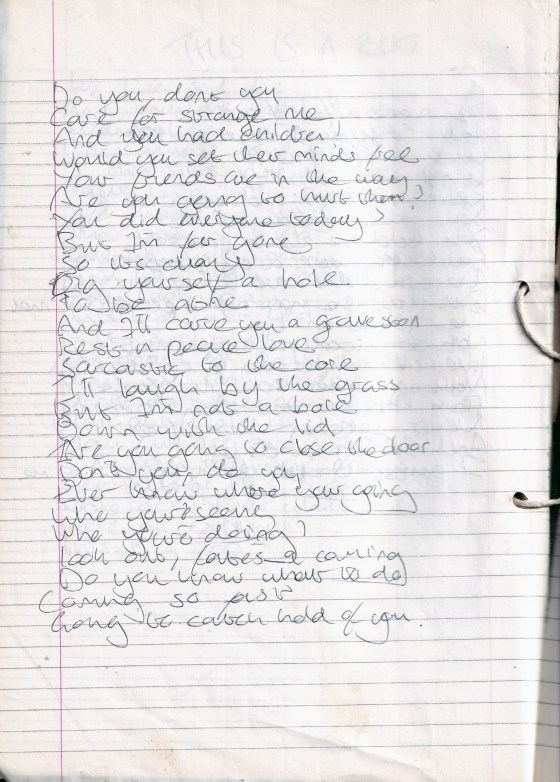 Do you, dont you
Care for strange me
And you had children!
Would you set their minds free
Your friends are in the way
Are you going to hurt them?
You did everyone today?
But Im far gone
So its change
Dig yourself a hole.
To be alone
And I'll carve you a graveston
Rest in peace love
Sarcastic to the core
I'll laugh by the grass
But Im not a bore
Down with the lid
Are you going to close the door
Don't you, do you
Ever know where your going
who your seeing
who you're doing?
look out, fates a coming
Do you know what to do
Coming so fast
Going to catch hold of you.